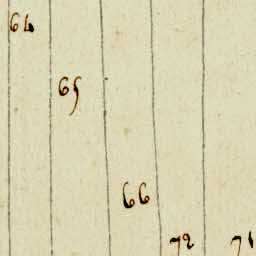 64
65
66
72 71